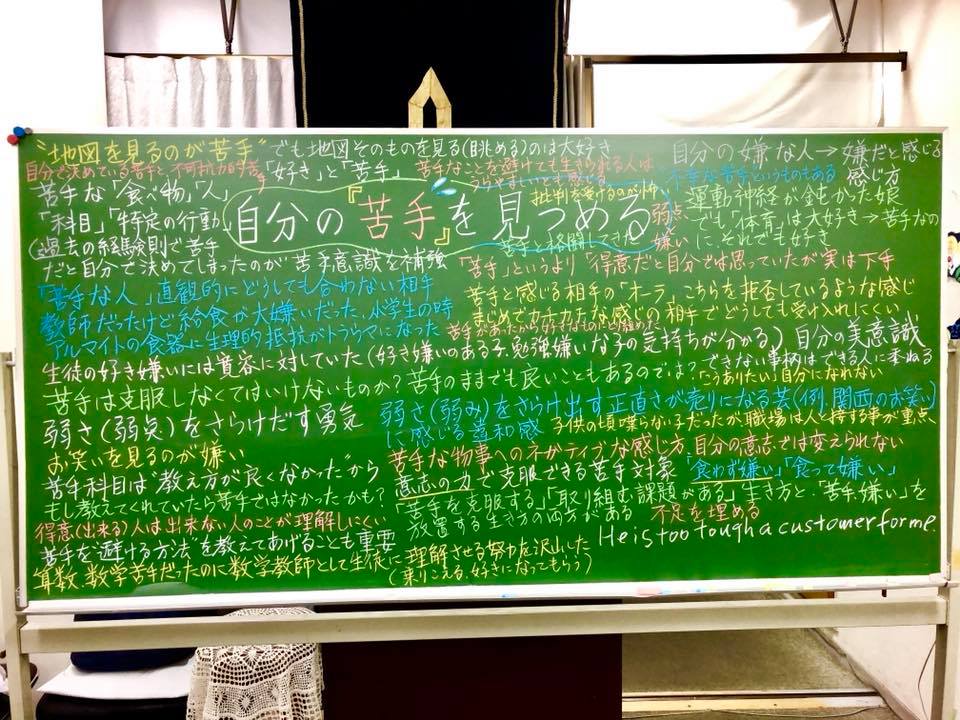 “地図を見るのが苦手”でも地図そのものを見る(眺める)のは大好き
自分の嫌な人→嫌だと感じる感じ方
自分で決めている苦手と、不可抗力的な
「好き」と「苦手」
苦手なことを避けても生きられる人は
不幸な苦手というものもある
苦手な「食べ物」「人」
「科目」「特定の行動」
自分の『苦手』を見つめる
批判を受けるのが
弱点
嫌い
苦手と格闘して
運動神経が鈍かった娘
でも「体育」は大好き→苦手なのに、それでも好き
(過去の経験則で苦手
だと自分で決めてしまったのが苦手意識を補強
「苦手」というより「得意だと自分では思っていたが実は下手
「苦手な人」直観的にどうしても合わない相手
苦手と感じる相手の「オーラ」、こちらを拒否しているような感じ
まじめでカチカチな感じの相手でどうしても受け入れにくい
教師だったけど給食が大嫌いだった、小学生の時
アルマイトの食器に生理的抵抗がトラウマになった
苦手があったから好きなものに
生徒の好き嫌いには寛容に対していた(好き嫌いのある子、勉強嫌いな子の気持ちが分かる)
自分の美意識
できない事柄はできる人に委ねる
苦手は克服しなくてはいけないものか?苦手のままでも良いこともあるのでは?
「こうありたい」自分になれない
弱さ(弱点)をさらけだす勇気
弱さ(弱み)をさらけ出す正直さが売りになる芸(例、関西のお笑い)
に感じる違和感
子供の頃喋らない子だったが、職場は人と接する事が重点
お笑いを見るのが嫌い
苦手な物事へのネガティブな感じ方
自分の意志では変えられない
苦手科目は“教え方が良くなかった”から
意志の力で克服できる苦手対象
「食わず嫌い」「食って嫌い」
もし教えてくれていたら苦手ではなかったかも?
「苦手を克服する」「取り組む課題がある」生き方と、「苦手、嫌い」を
放置する生き方の両方がある
不足を埋める
得意(出来る)人は出来ない人のことが理解しにくい
He is too tough a customer for me.
苦手を避ける方法を教えてあげることも重要
算数、数学苦手だったのに数学教師として生徒に理解させる努力を沢山した
(乗りこえる、好きになってもらう)